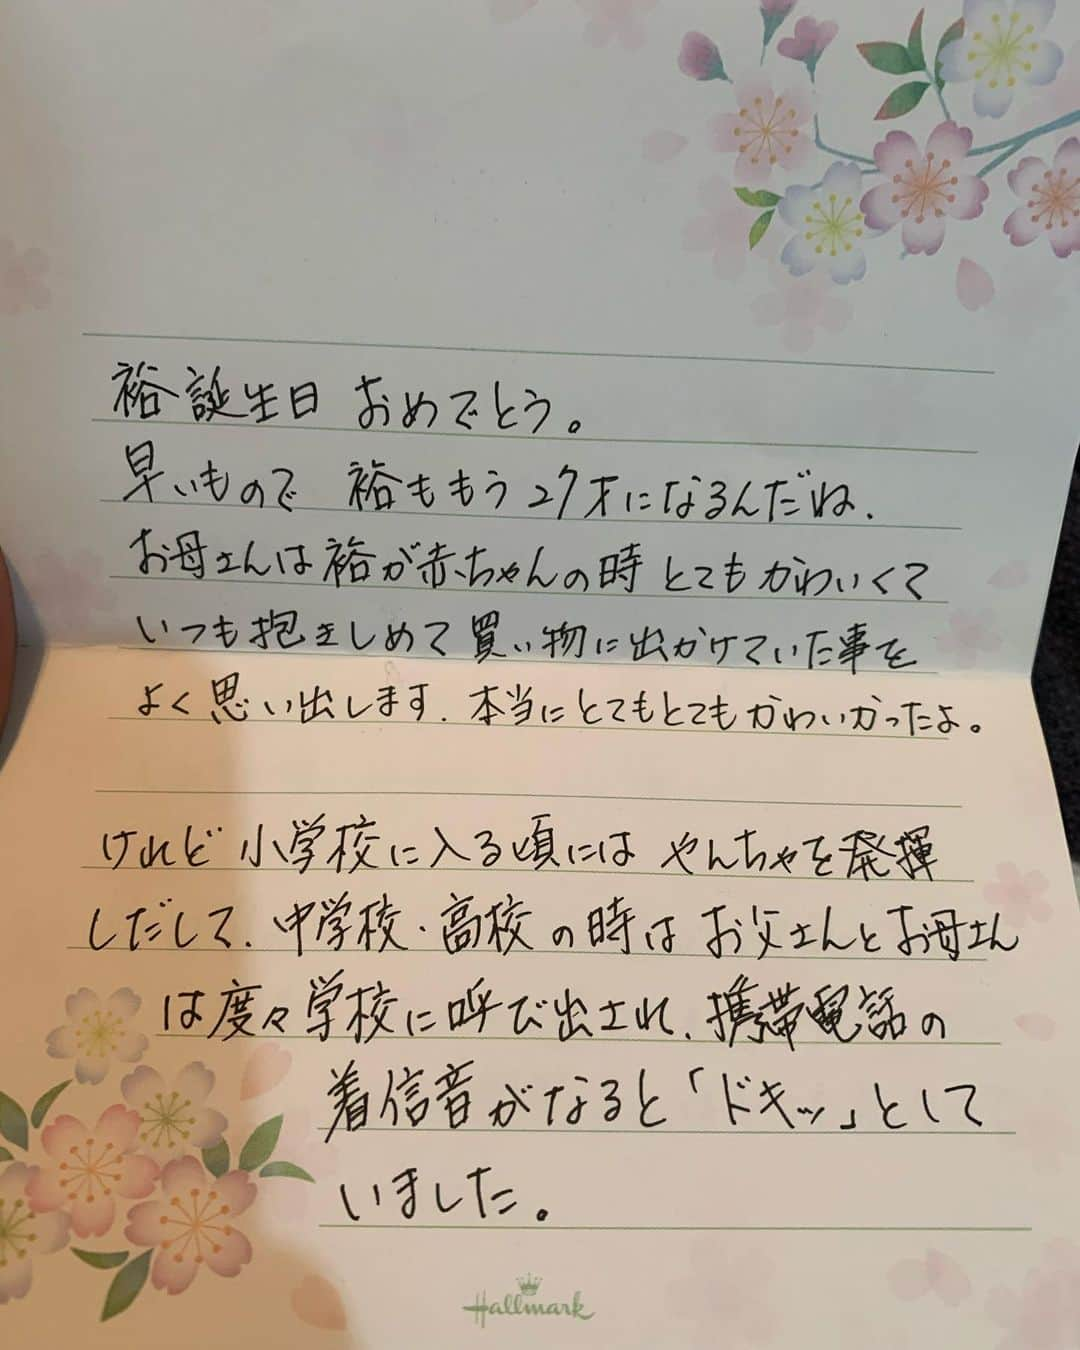 裕誕生日 おめでとう。
早いもので 裕ももう27才になるんだね.
お母さんは裕が赤ちゃんの時 とてもかわいくて
いつも抱きしめて買い物に出かけていた事を
よく思い出します. 本当にとてもとてもかわいかったよ。
けれど 小学校に入る頃には やんちゃを発揮
しだして. 中学校・高校の時は お父さんとお母さん
は度々学校に呼び出され. 携帯電話の
着信音がなると「ドキッ」として
いました。
Hallmark